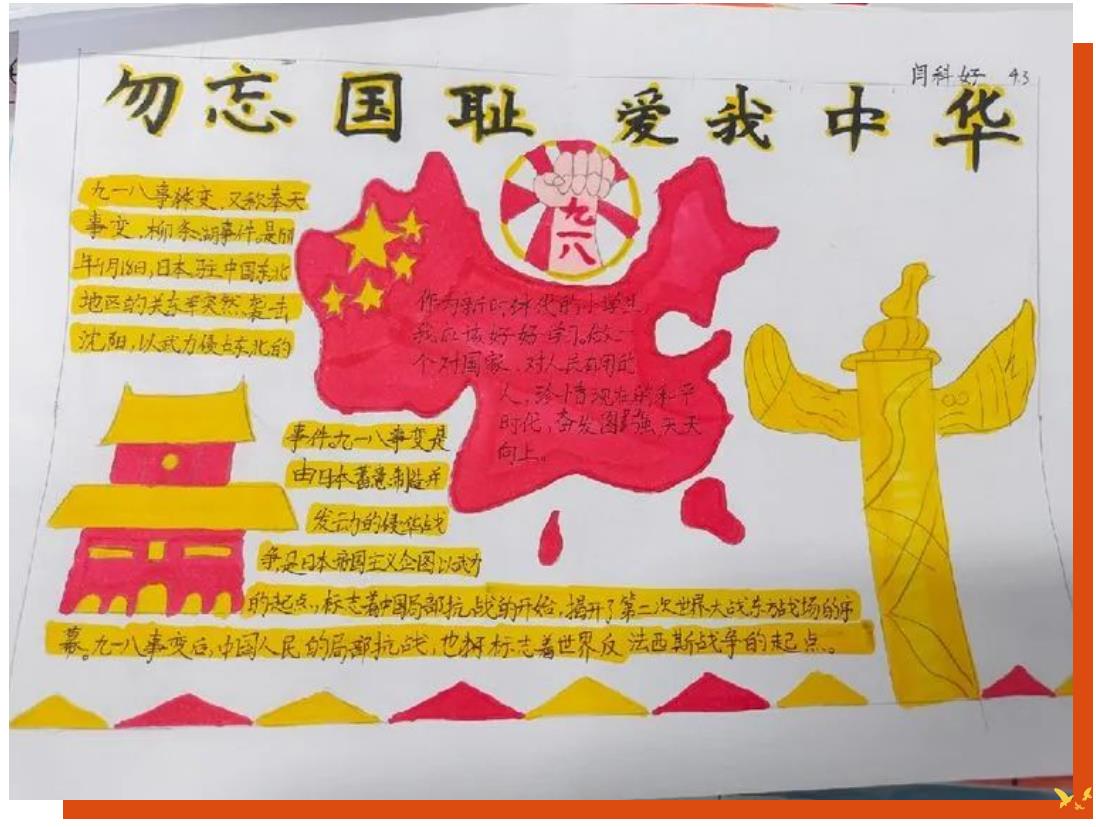 勿忘国耻 爱我中华
闫科好 4.3
九一八事变,又称奉天
事变,柳条湖事件,是
年9月18日,日本驻中国东北
地区的关东军突然袭击
沈阳,以武力侵占东北的
事件。九一八事变是
由日本蓄意制造并
发动的侵华战
争,是日本帝国主义企图以武力
的起点,标志着中国局部抗战的开始,揭开了第二次世界大战东方战场的序
幕。九一八事变后,中国人民的局部抗战,也标志着世界反法西斯战争的起点。
九
一
八
作为新时代的小学生
我应该好好学习。做一
个对国家、对人民有用的
人,珍惜现在的和平
时代,奋发图强,天天
向上。